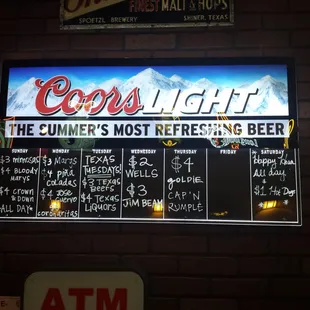 FINEST MALT & HOPS
SPOETZL BREWERY SHINER, TEXAS
Coors LIGHT
THE SUMMER'S MOST REFRESHING BEER
SUNDAY
$3 mimosas
$4 Bloody
Marys
$4 crown
& Down
ALL DAY
MONDAY
$3 Margs
$4 piña
coladas
$4 Jose
Cuervo
coronaritas
TUESDAY
TEXAS
TUESDAYS!
$3 Texas
Beers
$4 Texas
Liquors
WEDNESDAY
$2
WELLS
$3
JIM BEAM
THURSDAY
$4
goldie
CAP'N
RUMPLE
FRIDAY
SATURDAY
Happy
All day
$1 Hot Dogs
ATM